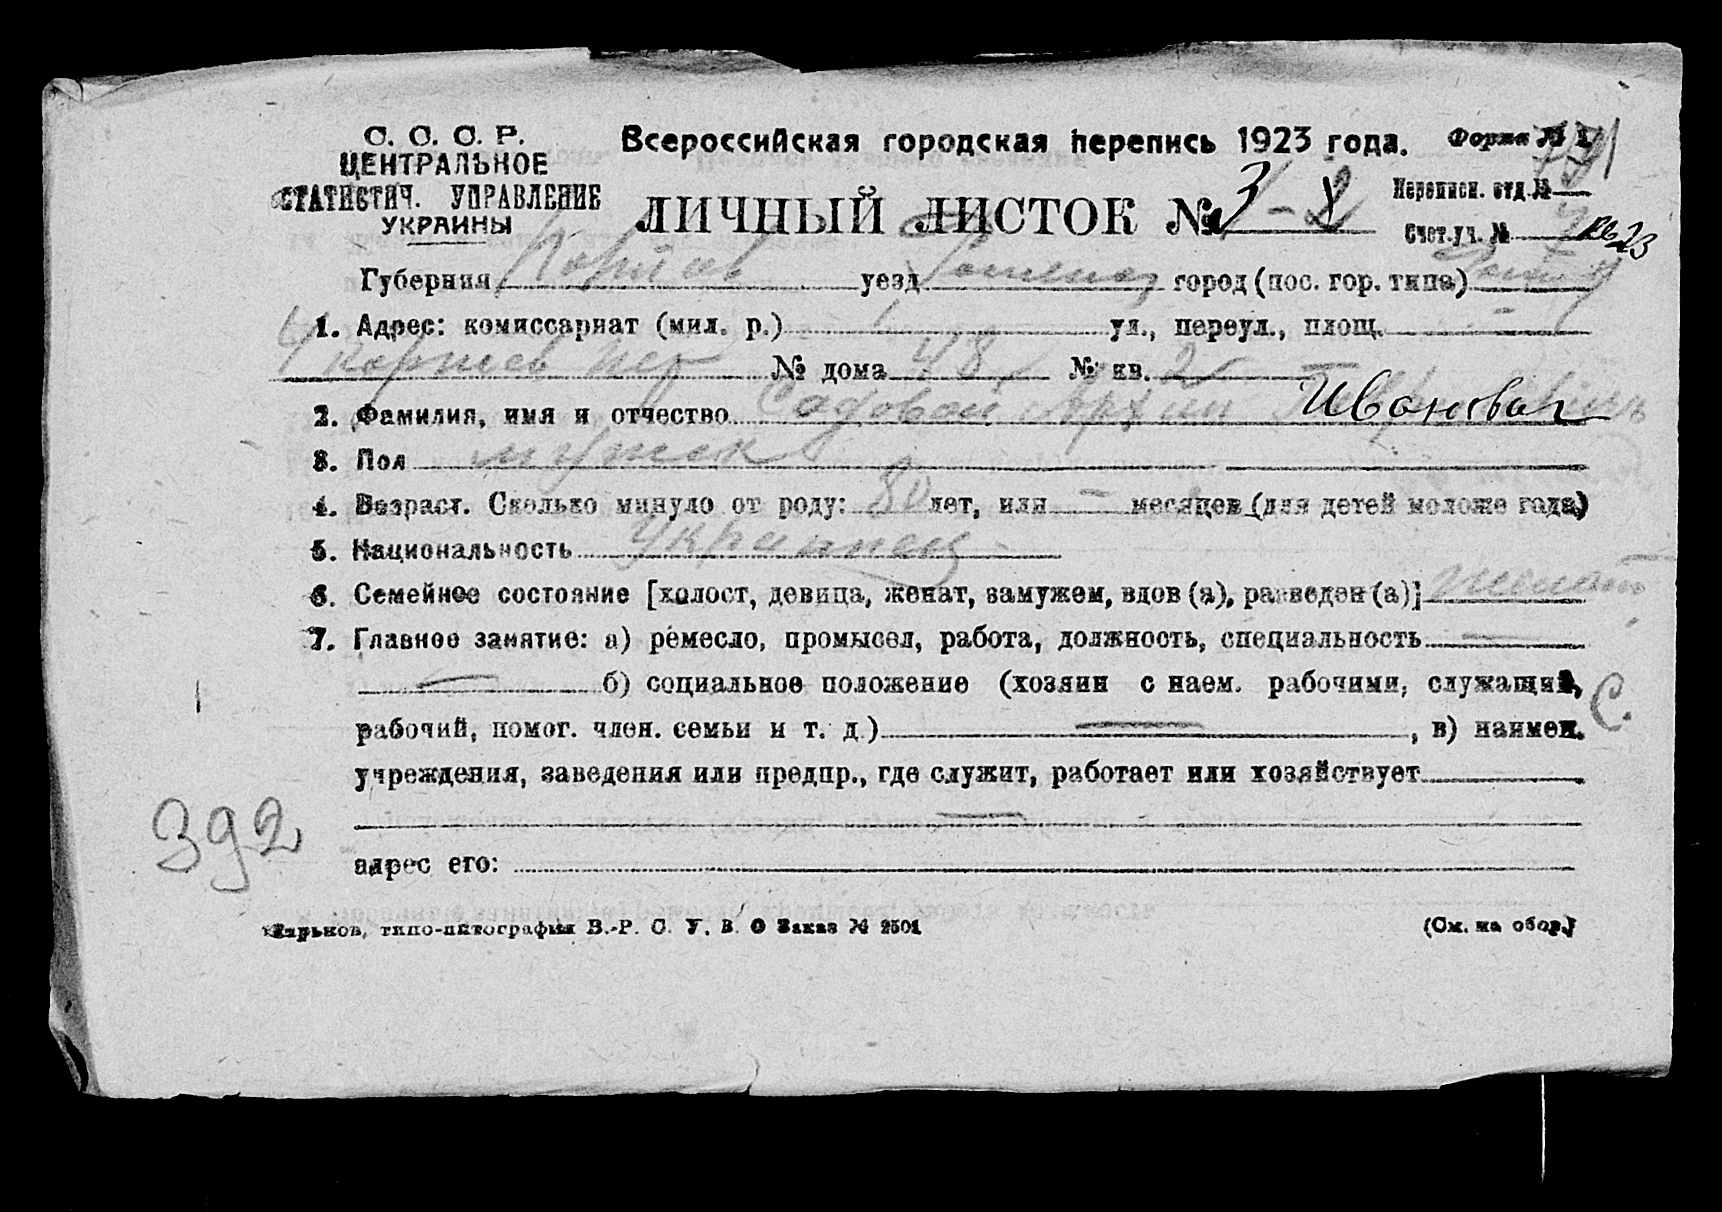 С. С. С. Р.
ЦЕНТРАЛЬНОЕ
СТАТИСТИЧ. УПРАВЛЕНИЕ
УКРАИНЫ
Всероссийская городская перепись 1923 года. Форма № 1
ЛИЧНЫЙ ЛИСТОК №
Переписн. отд. №
Счет. уч. №
Губерния уезд город (пос. гор. типа)
1. Адрес: комиссариат (мил. р.) ул., переул., площ.
№ дома 48 № кв. 2
2. Фамилия, имя и отчество Садовой Архип Иванович
3. Пол мужск
4. Возраст. Сколько минуло от роду: 80 лет, или – месяцев (для детей моложе года)
5. Национальность Украинец
6. Семейное состояние [холост, девица, женат, замужем, вдов (а), разведен (а)] женат
7. Главное занятие: а) ремесло, промысел, работа, должность, специальность —
— б) социальное положение (хозяин с наем. рабочими, служащий,
рабочий, помог. член. семьи и т. д.) — , в) наимен.
С.
учреждения, заведения или предпр., где служит, работает или хозяйствует
—
392
адрес его:
Харьков, типо-литография В.-Р. С. У. В. О Заказ № 2501
(См. на обор.)